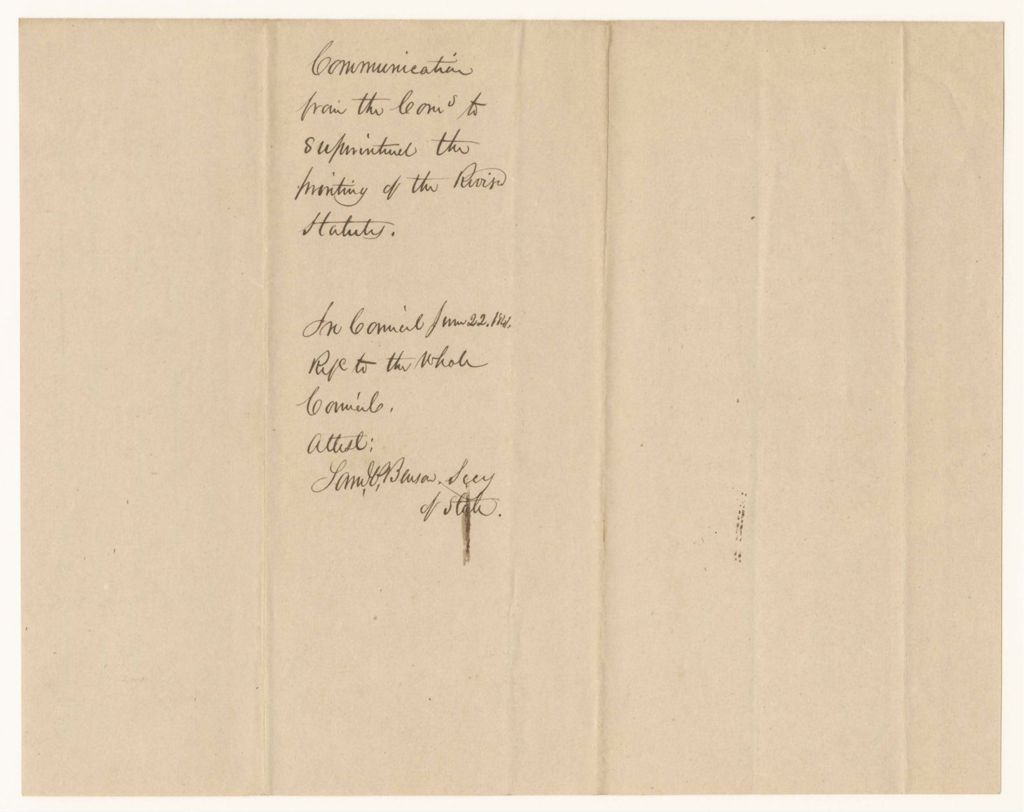 Communication
from the Com.s to
superintend the
printing of the Revised
Statutes.
In Council June 22. 1841.
Ref.d to the Whole
Council.
Attest:
Saml. P. Benson. Secy
of State.